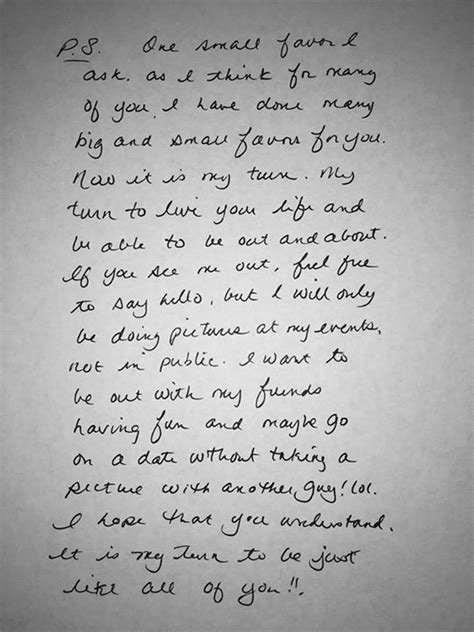 P.S. One small favor I
ask. as I think for many
of you. I have done many
big and small favors for you.
Now it is my turn. My
turn to live your life and
be able to be out and about.
If you see me out, feel free
to say hello, but I will only
be doing pictures at my events,
not in public. I want to
be out with my friends
having fun and maybe go
on a date without taking a
picture with another guy! lol.
I hope that you understand.
It is my turn to be just
like all of you!!.